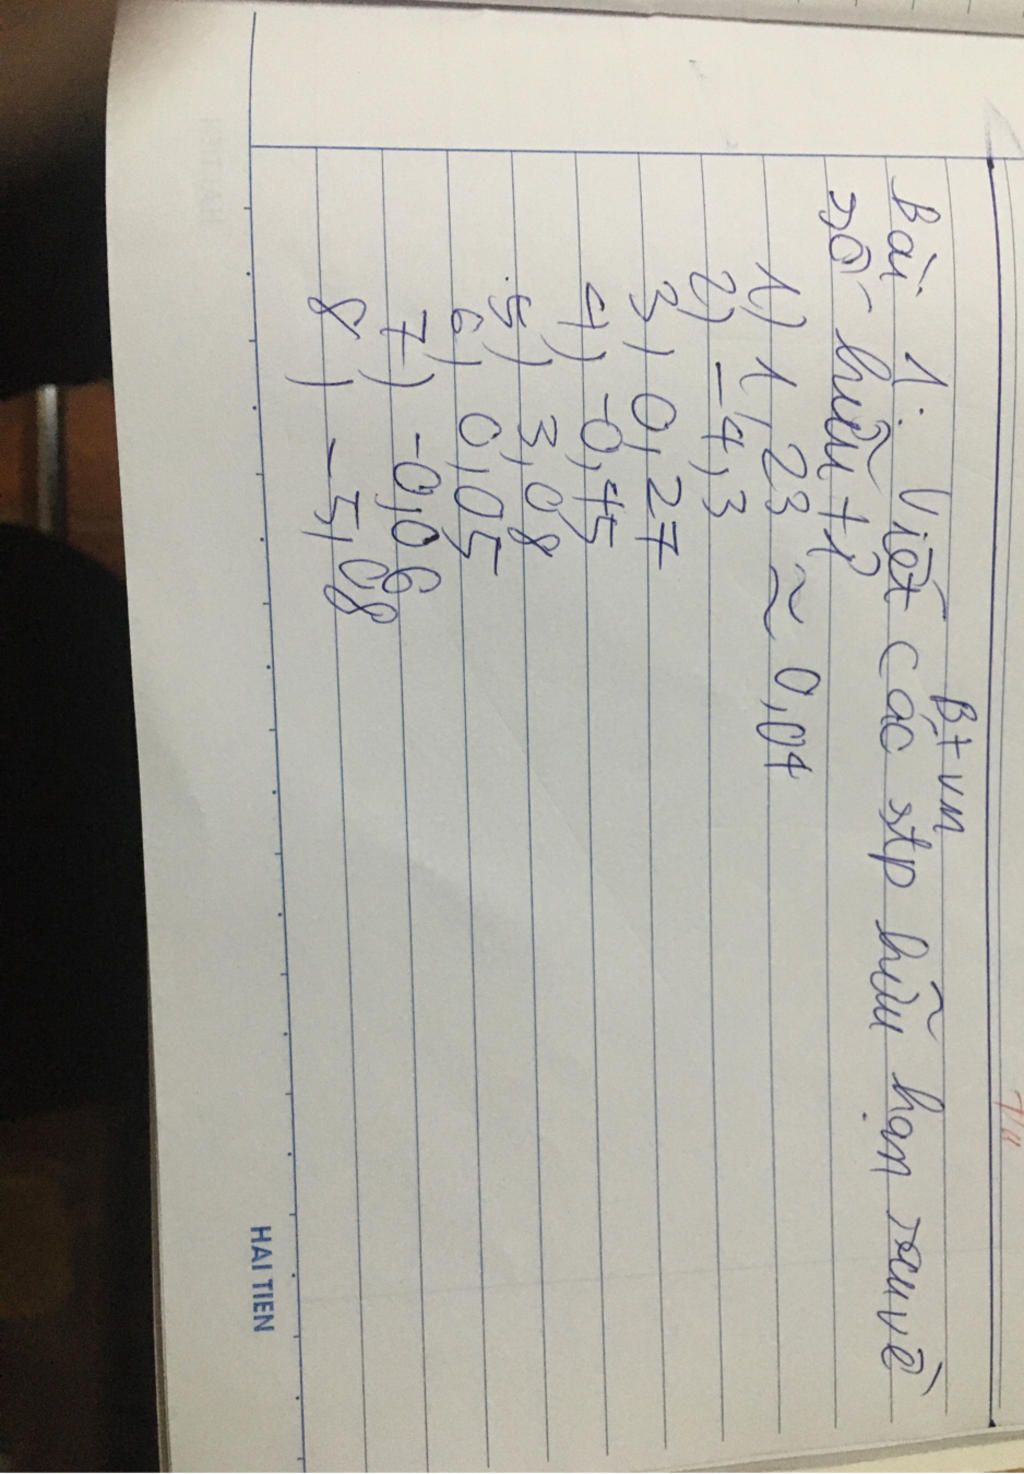 B,t vn
Bài 1: Viết các stp hữu hạn sau về
số hữu tỉ
1) 1,23 ~ 0,04
2) -4,3
3) 0,27
4) -0,45
5) 3,08
6) 0,05
7) -0,06
8) -5,08
HAI TIEN